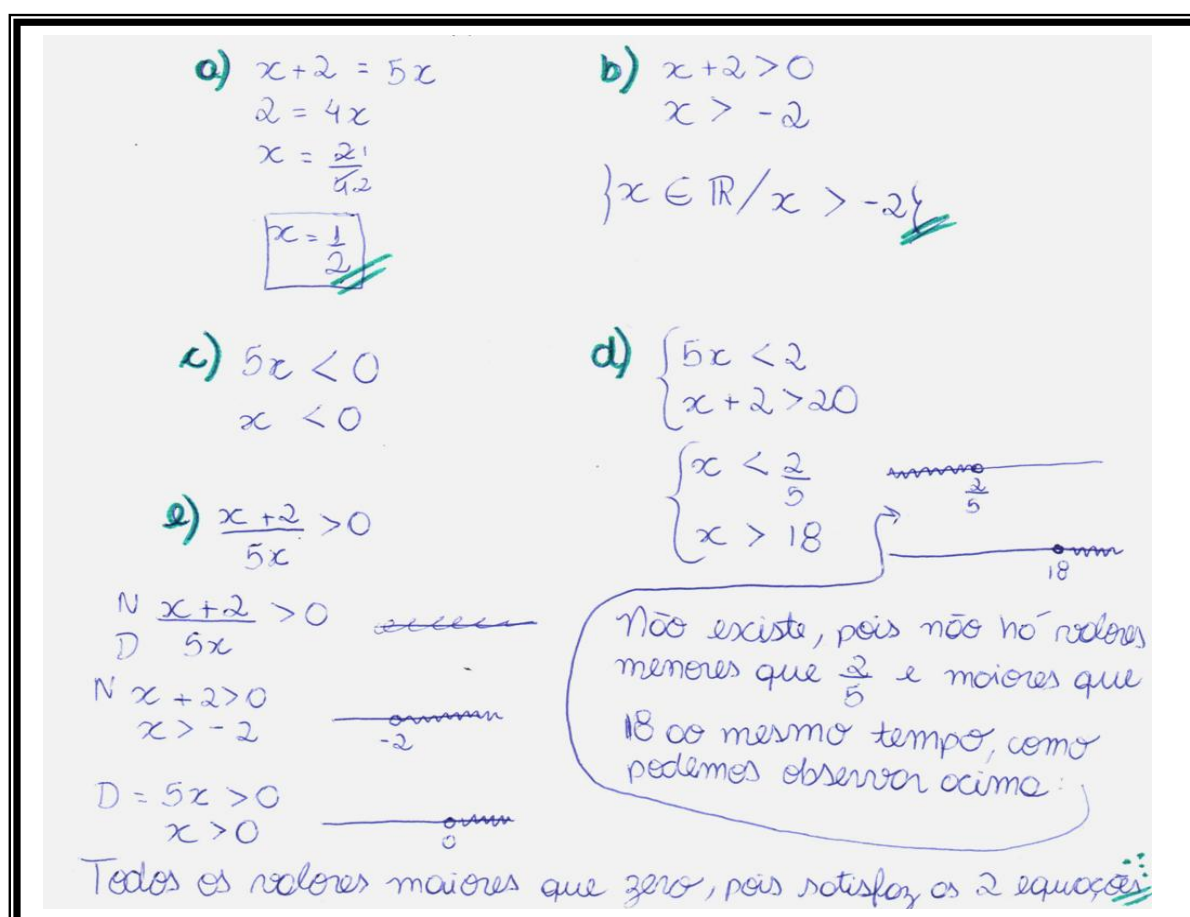 a) x+2 = 5x
2 = 4x
x = 2 1 / 4 2
x = 1/2
b) x+2>0
x > -2
}x ∈ ℝ/x > -2{
c) 5x < 0
x < 0
d) { 5x < 2
x+2>20
{ x < 2/5
x > 18
2/5
18
Não existe, pois não há valores
menores que 2/5 e maiores que
18 ao mesmo tempo, como
podemos observar acima.
e) x+2/5x >0
N x+2 / D 5x > 0
N x+2>0
x>-2
-2
D = 5x >0
x >0
0
Todos os valores maiores que zero, pois satisfaz as 2 equações